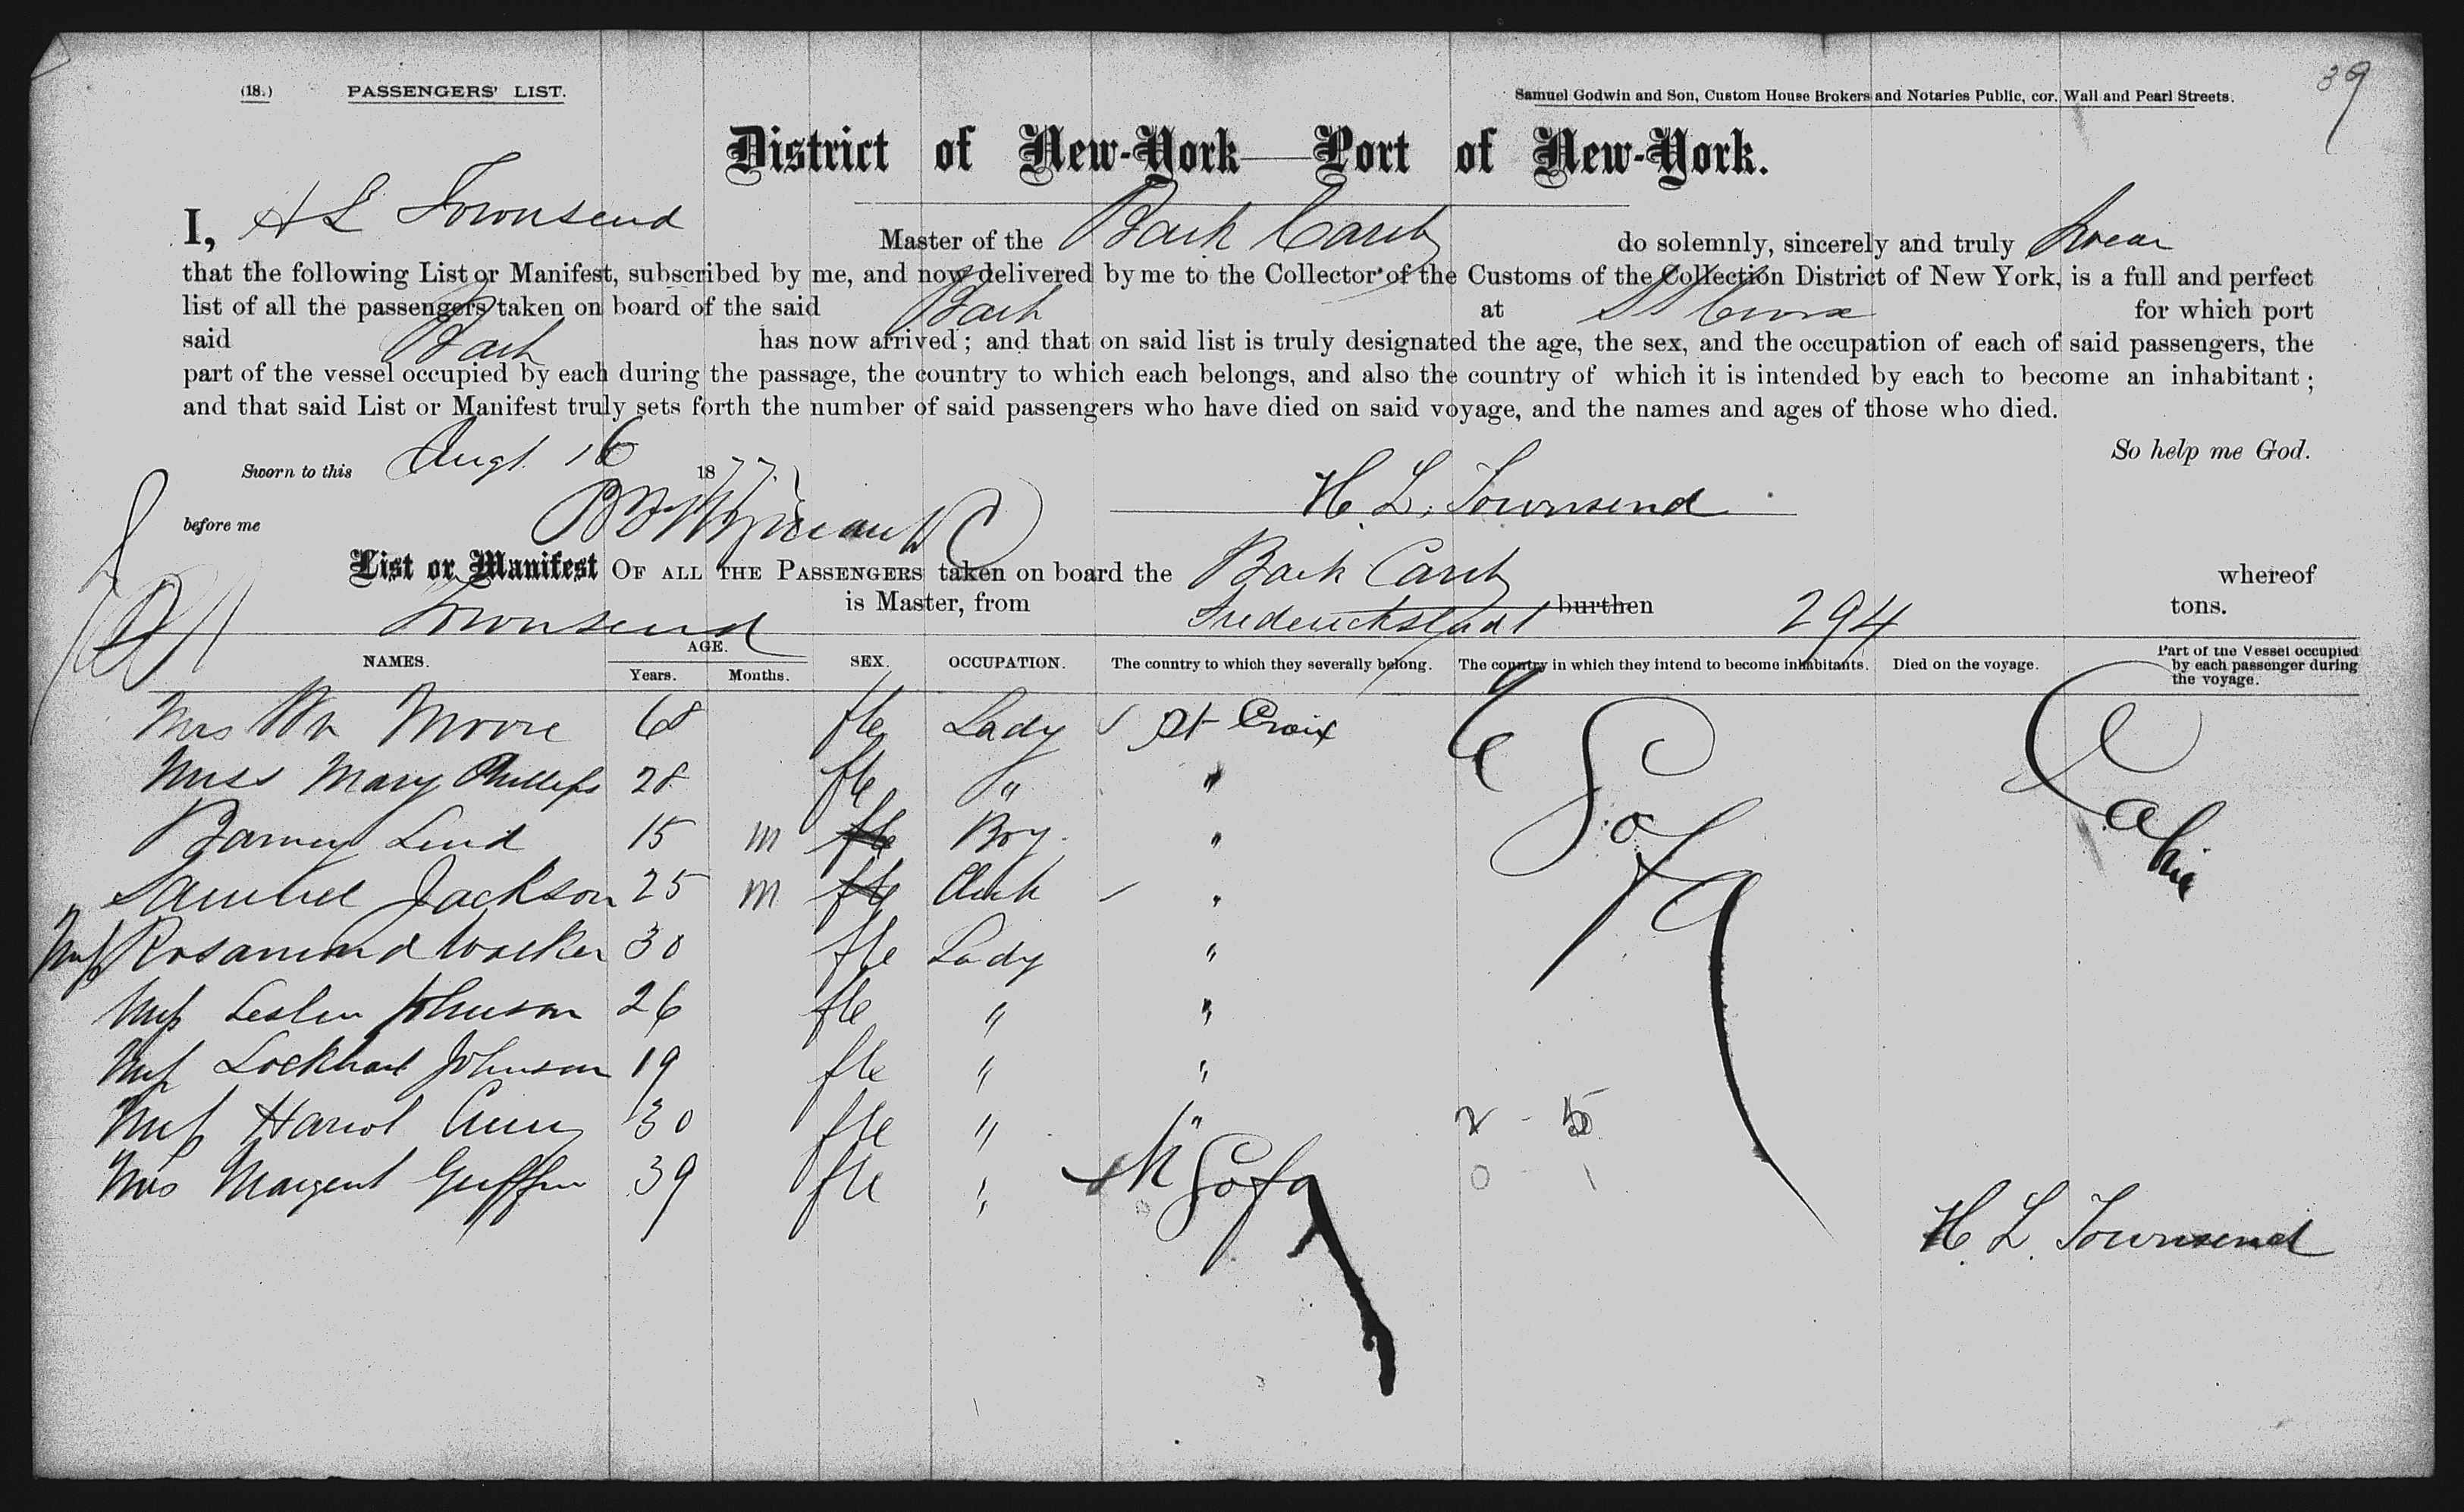 (18.) PASSENGERS' LIST.
Samuel Godwin and Son, Custom House Brokers and Notaries Public, cor. Wall and Pearl Streets.
39
District of New-York—Port of New-York.
I, H L Townsend Master of the Bark Carib do solemnly, sincerely and truly Swear
that the following List or Manifest, subscribed by me, and now delivered by me to the Collector of the Customs of the Collection District of New York, is a full and perfect
list of all the passengers taken on board of the said Bark at St Croix for which port
said Bark has now arrived; and that on said list is truly designated the age, the sex, and the occupation of each of said passengers, the
part of the vessel occupied by each during the passage, the country to which each belongs, and also the country of which it is intended by each to become an inhabitant;
and that said List or Manifest truly sets forth the number of said passengers who have died on said voyage, and the names and ages of those who died.
So help me God.
Sworn to this Augt. 16 1877.
before me
H. L. Townsend
List or Manifest OF ALL THE PASSENGERS taken on board the Bark Carib whereof
Townsend is Master, from Frederickstadt burthen 294 tons.
NAMES. AGE. Years. Months. SEX. OCCUPATION. The country to which they severally belong. The country in which they intend to become inhabitants. Died on the voyage. Part of the Vessel occupied by each passenger during the voyage.
Mrs Wm Moore 68 fle Lady St Croix
Miss Mary Phillips 28 fle " "
Barney Lind 15 m fle Boy "
Samuel Jackson 25 m fle Clerk "
Miss Rosamond Walker 30 fle Lady "
Miss Johnson 26 fle " "
Miss Lockhart Johnson 19 fle " "
Miss 30 fle " " 2 - 5
Mrs Margent Griffin 39 fle " 0 1
H. L. Townsend